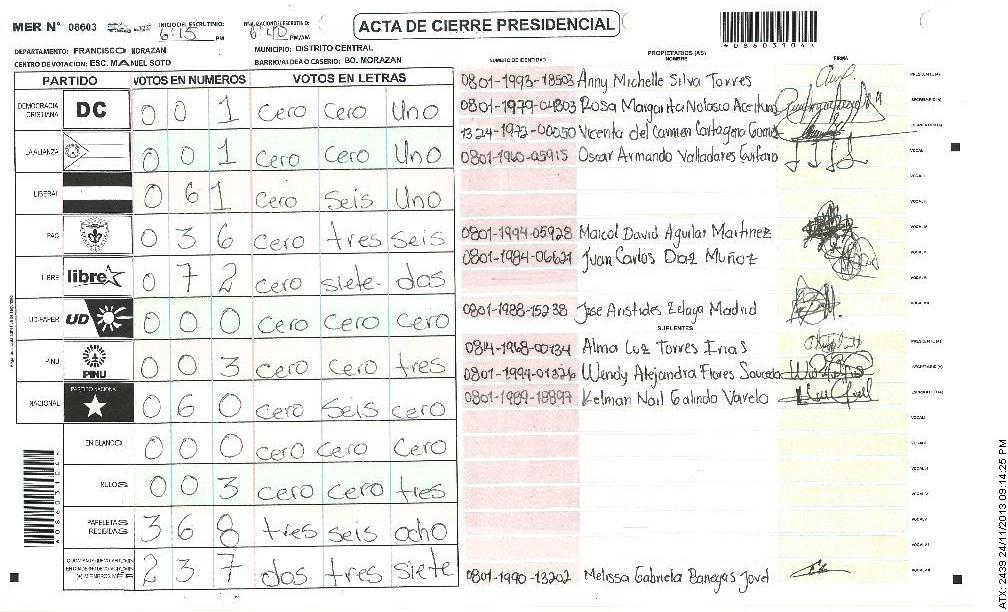 MER N° 08603 INICIO DEL ESCRUTINIO: 6:15 PM FINALIZACION ESCRUTINIO: 6:40 PM/AM
ACTA DE CIERRE PRESIDENCIAL
*086031044*
DEPARTAMENTO: FRANCISCO MORAZAN MUNICIPIO: DISTRITO CENTRAL
CENTRO DE VOTACION: ESC. MANUEL SOTO BARRIO/ALDEA O CASERIO: BO. MORAZAN
NUMERO DE IDENTIDAD PROPIETARIOS (AS) NOMBRE FIRMA
PARTIDO VOTOS EN NUMEROS VOTOS EN LETRAS
DEMOCRACIA CRISTIANA DC 0 0 1 cero cero Uno
LA ALIANZA 0 0 1 cero cero Uno
LIBERAL 0 6 1 cero Seis Uno
PAC 0 3 6 cero tres seis
LIBRE libre 0 7 2 cero siete dos
UD-FAPER UD 0 0 0 cero cero cero
PINU PINU 0 0 3 cero cero tres
NACIONAL PARTIDO NACIONAL 0 6 0 cero seis cero
EN BLANCO 0 0 0 cero cero cero
NULOS 0 0 3 cero cero tres
PAPELETAS RECIBIDAS 3 6 8 tres seis ocho
2 3 7 dos tres siete
0801-1993-18503 Anny Michelle Silva Torres PRESIDENTE(A)
0801-1979-04803 Rosa Margarita Nolasco Aceituno SECRETARIO (A)
1324-1972-00050 Vicenta del Carmen Cartagena Gomez ESCRUTADOR(A)
0801-1960-05915 Oscar Armando Valladares VOCAL
VOCAL I
VOCAL II
0801-1994-05928 Maicol David Aguilar Martinez VOCAL IV
0801-1984-06621 Juan Carlos Diaz Muñoz
VOCAL V
0801-1988-15238 Jose Aristides Zelaya Madrid
SUPLENTES
0814-1968-00134 Alma Luz Torres Irias PRESIDENTE(A)
0801-1994-01326 Wendy Alejandra Flores Sauceda SECRETARIO (A)
0801-1989-18897 Kelman Noil Galindo Varela ESCRUTADOR(A)
VOCAL I
VOCAL II
VOCAL III
VOCAL IV
VOCAL V
VOCAL VI
0801-1990-13202 Melissa Gabriela Banegas Jovel
ATX: 2439 24/11/2013 09:14:25 PM